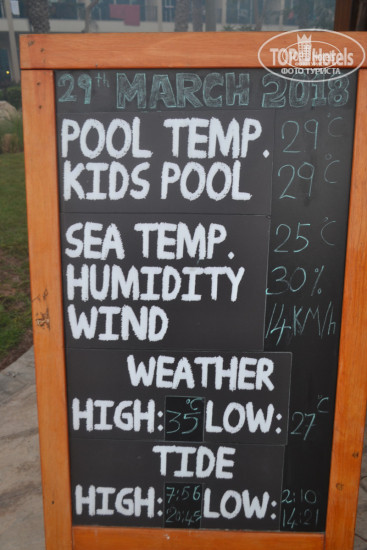 TOPHotels
ФОТО ТУРИСТА
29th MARCH 2018
POOL TEMP. 29°C
KIDS POOL 29°C
SEA TEMP. 25°C
HUMIDITY 30%
WIND 14KM/H
WEATHER
HIGH: 35°C LOW: 27°C
TIDE
HIGH: 7:56 LOW: 2:10
20:45 14:21